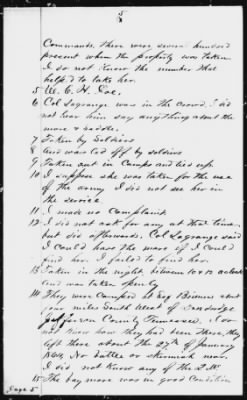 5
Commands, there were several hundred
present when the property was taken
I do not know the number that
help'd to take her.
5 W. C. H. Lee.
6 Col Lagrange was in the crowd. I did
not hear him say anything about the
mare & saddle.
7 Taken by Soldiers
8 And was led off by soldiers
9 Taken out in Camps and tied up.
10 I suppose she was taken for the use
of the army I did not see her in
the service.
11 I made no Complaint
12 I did not ask for any at that time
but did afterwards Col Lagrange said
I could have the mare if I could
find her. I failed to find her.
13 Taken in the night between 10 & 12 oclock
and was taken openly
14 They were Camped at
four miles South West of
Jefferson County Tennessee, I do
not know how they had been there, they
left there about the 27th of January
1864, No battle or skirmish near.
I did not know any of the Q.M.
15 The bay mare was in good Condition
Page 5